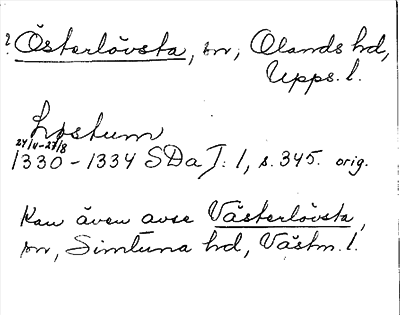 ? Österlövsta, sn, Olands hd,
Upps. l.
Lostum
24/4-27/8
1330-1334 SDa J: 1, s. 345. orig.
Kan även avse Västerlövsta,
sn, Simtuna hd, Västm. l.